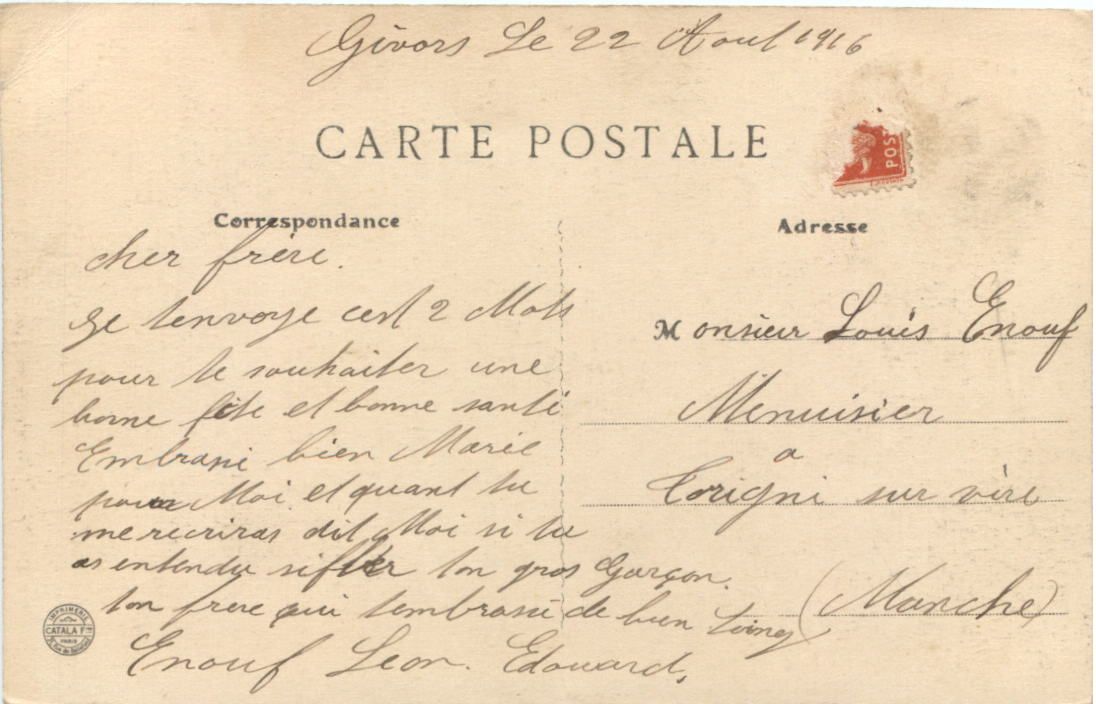 Givors Le 22 Aout 1916
CARTE POSTALE
POS
Correspondance
Adresse
cher frère.
Je tenvoye cest 2 Mots
pour te souhaiter une
bonne fête et bonne santé
Embrasse bien Marie
pour Moi et quant tu
me recriras dit Moi si tu
as entendu siffler ton gros Garçon.
ton frere qui tembrasse de bien Loing
Enouf Leon. Edouard.
Monsieur Louis Enouf
Menuisier
a
Torigni sur vire
(Manche)
IMPRIMERIE
CATALA Frs
PARIS